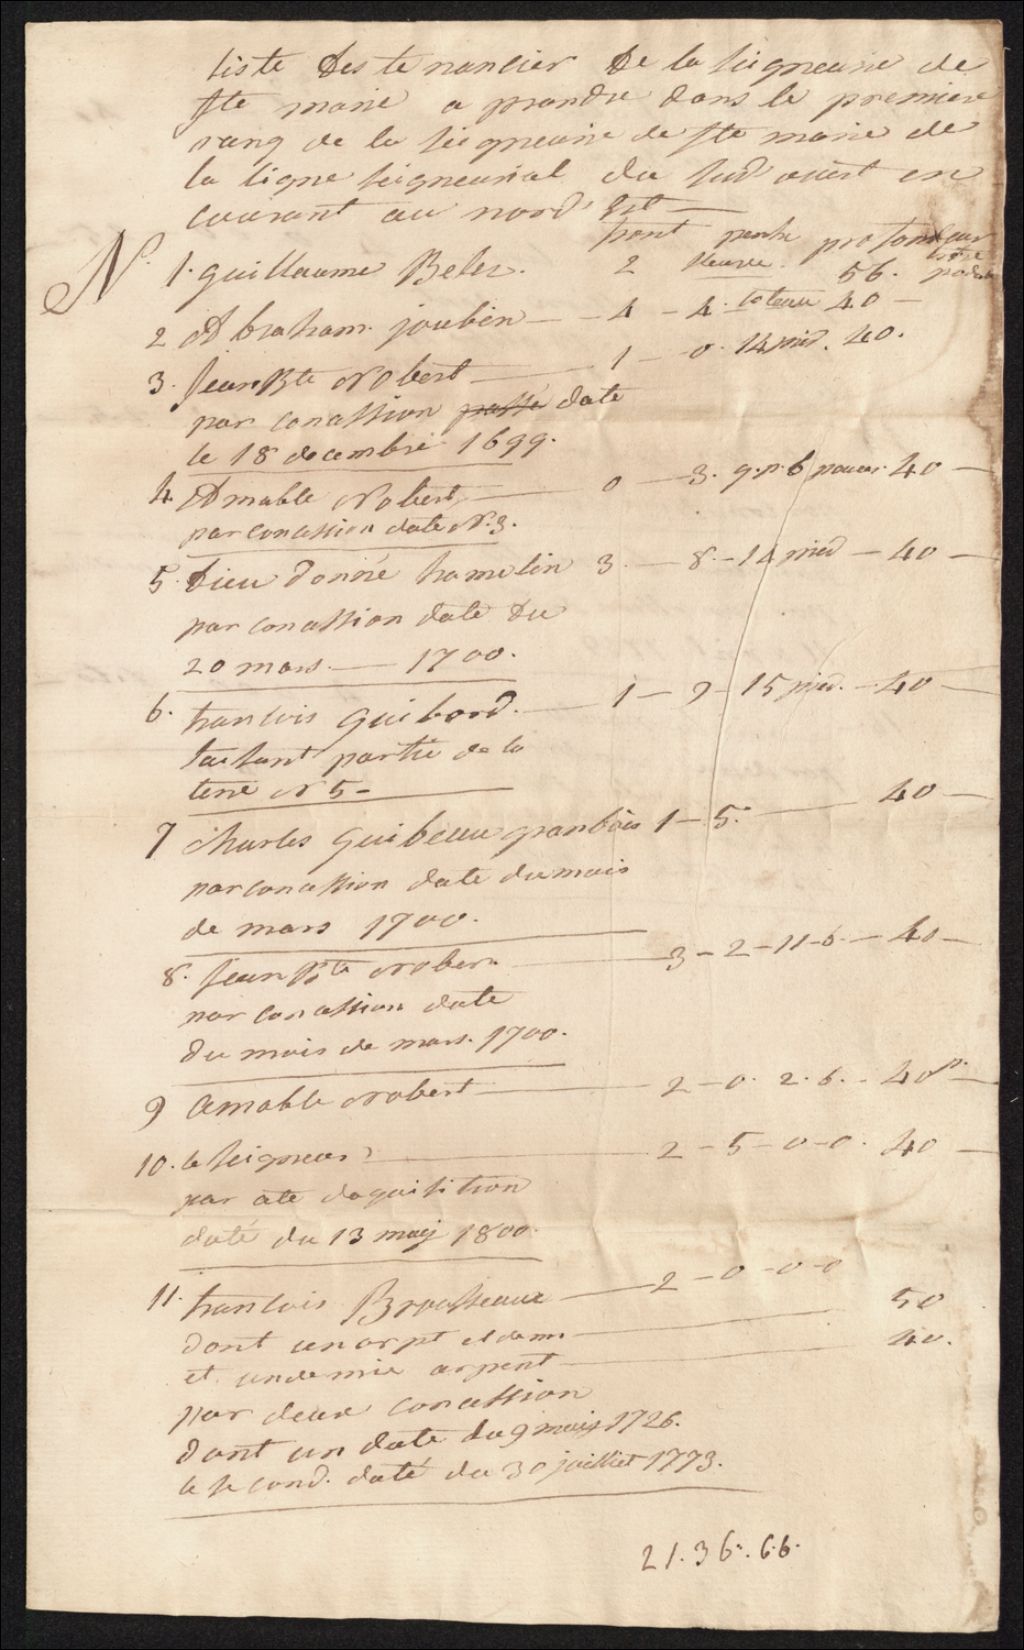 liste des tenancier de la seigneurie de
Ste marie a prandre dans le premiere
rang de la seigneurie de Ste marie de
la ligne seigneurial du sud ouest en
courant au nord est —
front perche profondeur
N. 1. guillaume Beler. 2 56.
2 Abraham joubin — 4 — 4. 40 —
3. jean Bte Robert — 1 — 0. 14 pied. 40.
par conassion passé date
le 18 decembre 1699.
4 Amable Robert — 0 — 3. 9. p. 6 pouces. 40 —
par conassion date N. 3.
5. Dieu donné hamelin 3. — 8. — 14 pied — 40 —
par conassion date Du
20 mars — 1700.
6. francois Guibord. — 1 — 9 — 15 pied. — 40 —
faisant partie de la
terre N 5 —
7 charles Guibeau granbois 1 — 5. — 40 —
par conassion date du mois
de mars 1700.
8. jean Bte Robert — 3 — 2 — 11 — 6. — 40 —
par conassion date
du mois de mars. 1700.
9 amable Robert — 2 — 0. 2. 6. — 40 p. —
10. le seigneur — 2 — 5 — 0 — 0. 40 —
par ate daquisition
daté du 13 maij 1800.
11. francois Brousseaux — 2 — 0 — 0 — 0
dont un arpt et demi — 50
et un demie arpent — 40.
par deux conassion
dont un date du 9 maij 1726.
le second. daté du 30 juilliet 1773.
21. 36. 6.6.